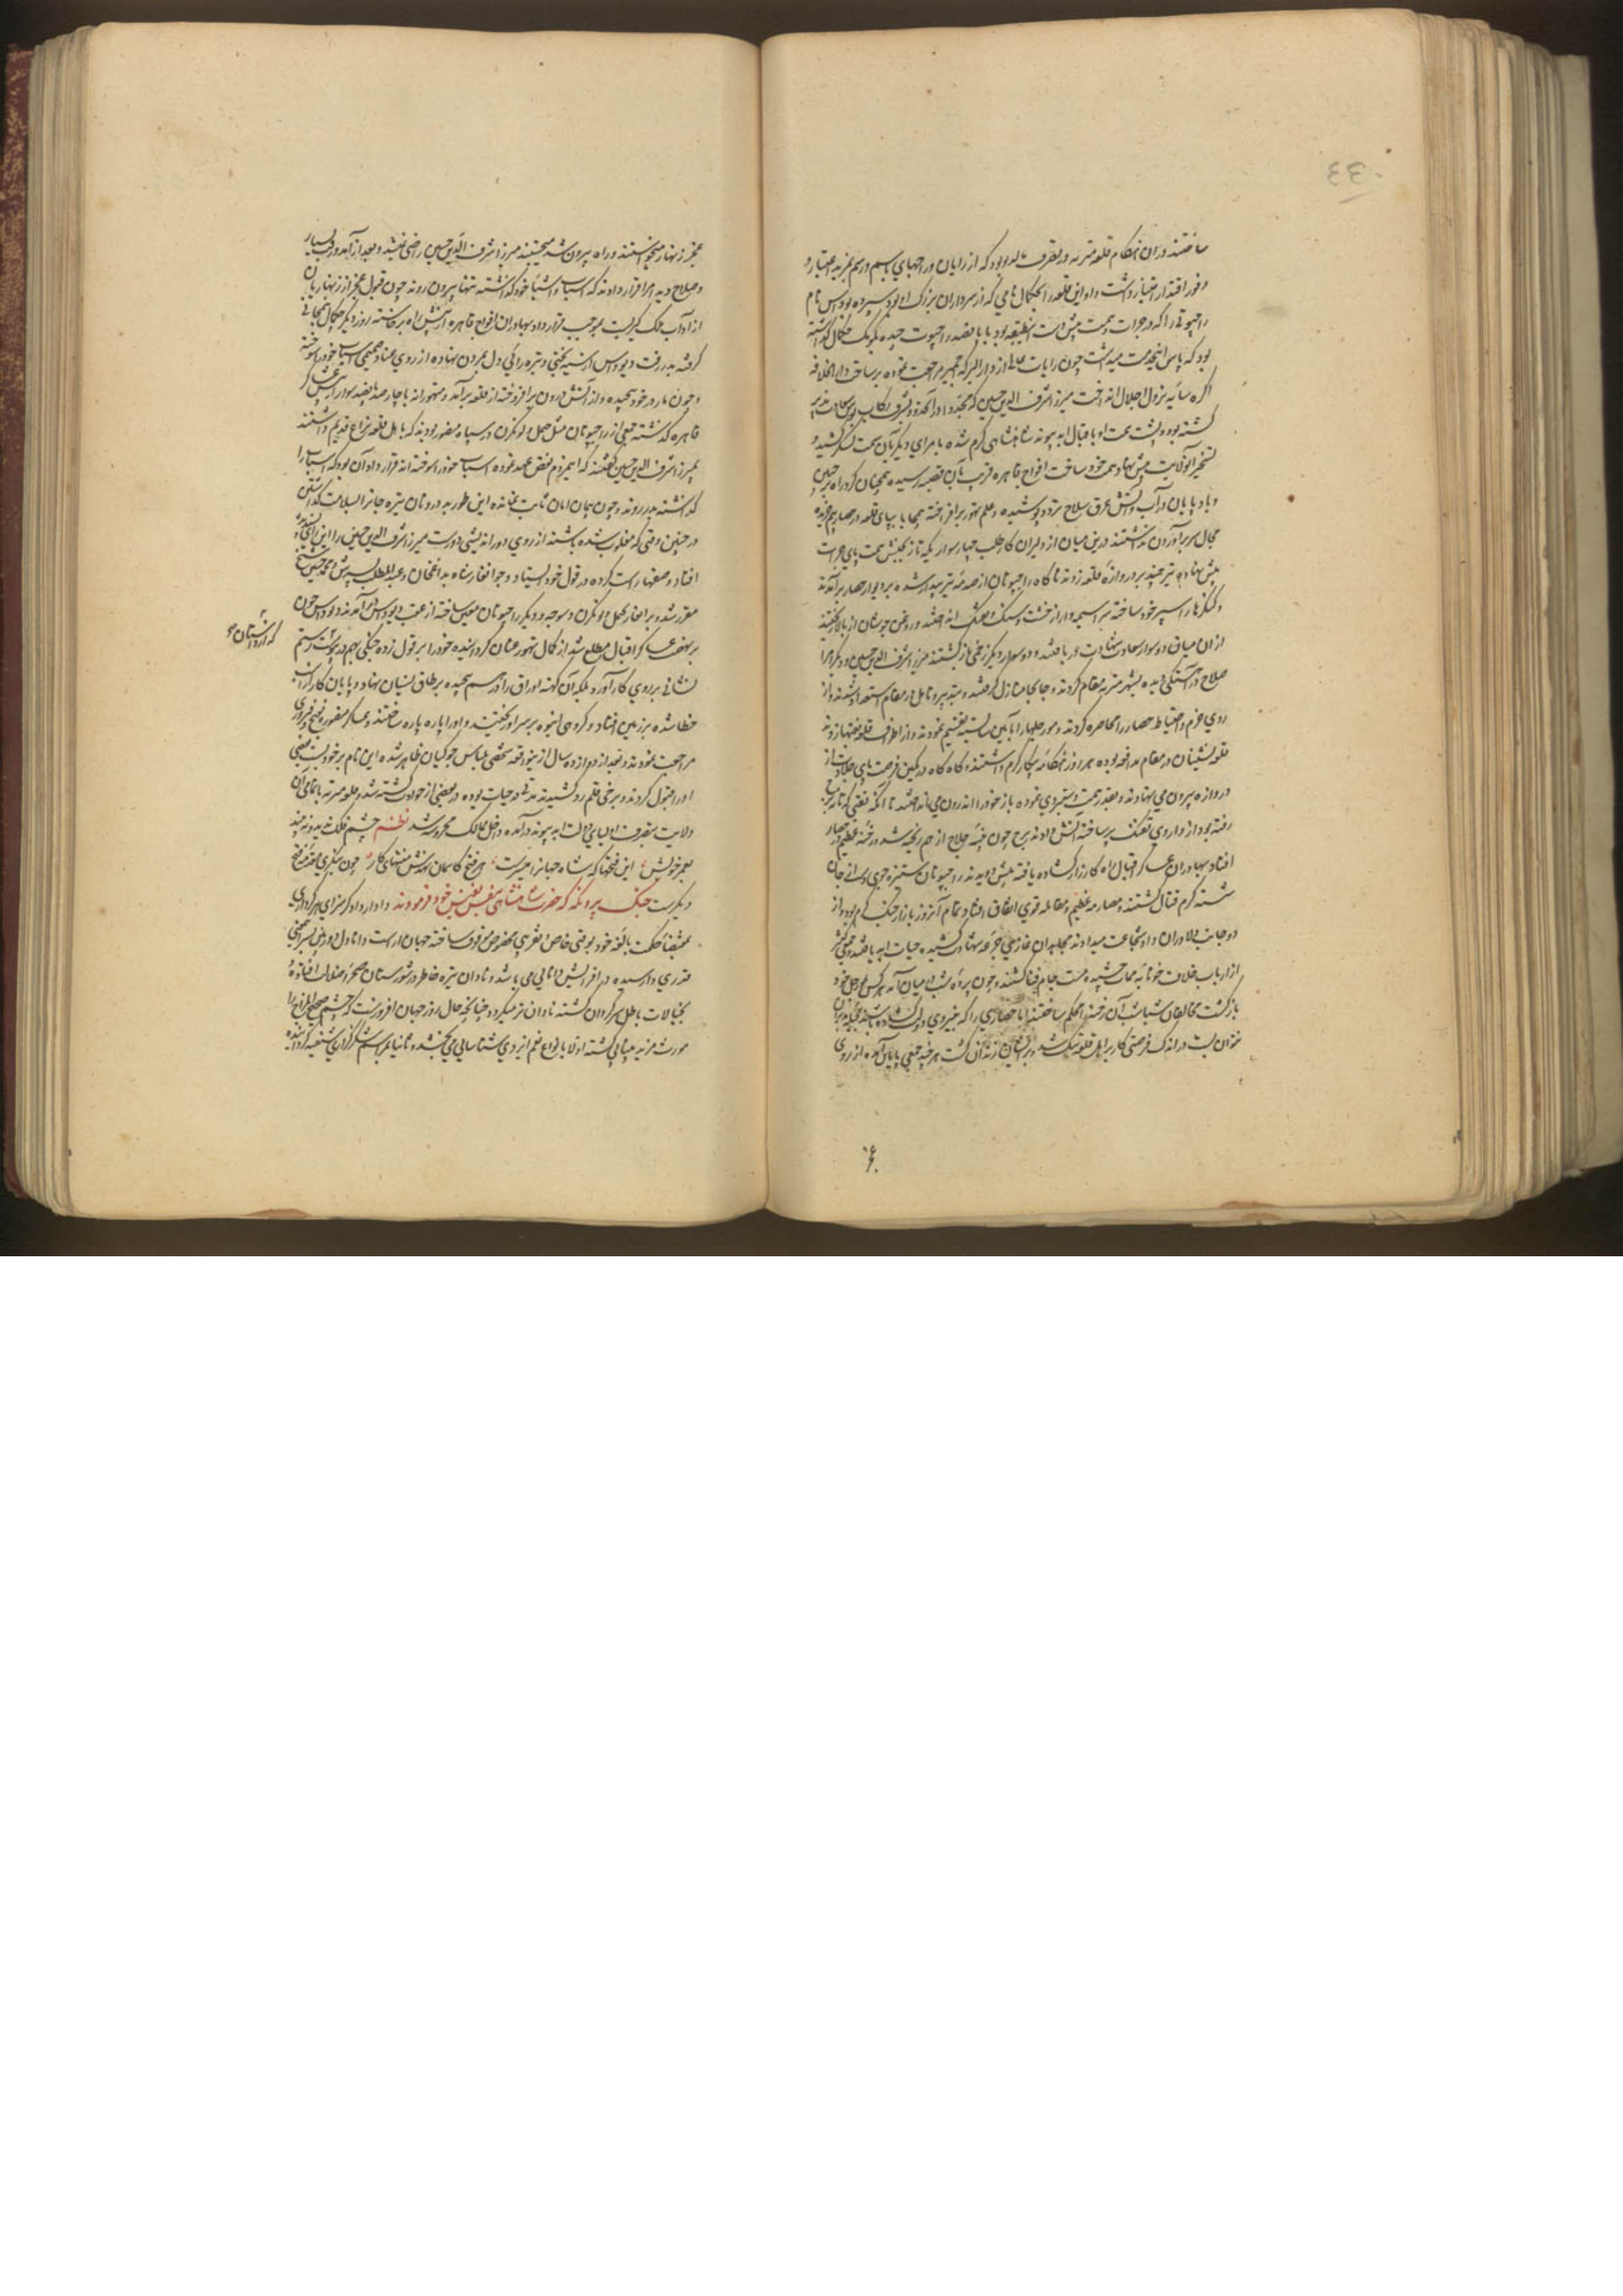 ساختند در آن هنگام قلعه میرته در تصرف مالدیو بود که از رایان و راجهای باسم و رسم بمزید اعتبار و
وفور اقتدار امتیاز داشت و او این قلعه را بجکمال نامی که از سرداران بزرگ او بود سپرده دیوداس نام
راجپوتی را که در جرات و همت پیش دست این طبقه بود با پانصد راجپوت چیده بکمک جکمال گذاشته
بود که پاس این خدمت میداشت چون رایات عالی از دار البرکة اجمیر مراجعت نموده بر ساحت دار الخلافه
اگره سایه نزول اجلال انداخت میرزا شرف الدین حسین که مجددا در آنحدود بشرف رکاب بوس سعادت پذیر
گشته بود و پشت همت او باقبال ابد پیوند شاهنشاهی گرم شده با امرای دیگر بآن سمت لشکر کشید و
تسخیر آن ولایت پیش نهاد همت خود ساخت افواج قاهره قریب بآن قصبه رسیده همچنان گرد راه بر جبین
و باد پایان در آب و آتش غرق سلاح تردد پوشیده و علم تهور برافراخته بیمحابا بپای قلعه
مجال سر برآوردن نداشتند درین میان از دلیران کارطلب چهار سوار یکه تاز بجنبش همت پای جرات
پیش نهاده تیر چند بر دروازه قلعه زدند ناگاه راجپوتان از صدمه تیر بیدار شده بر دیوار حصار برآمدند
و کنگرها را سپر خود ساخته سراسیمه وار از خشت و سنگ و خدنگ انداختند و روغن جوشان از بالا ریختند
از آن میان دو سوار سعادت شهادت دریافتند و دو سوار دیگر زخمی بازگشتند میرزا شرف الدین حسین و دیگر امرا
صلاح در آهستگی دیده بشهر میرته مقام کردند و جابجا منازل گرفتند و بتدبیر و تامل در مقام استعداد شدند و از
روی حزم و احتیاط حصار را محاصره کردند و مورچلها را بآیین شایسته تقسیم نمودند و از اطراف قلعه نقبها زدند
قلعه نشینان در مقام مدافعه بوده هر روز هنگامه پیکار گرم داشتند و گاه گاه در کمین فرصت پای جلادت از
دروازه بیرون می نهادند و بقدر همت دستبردی نموده باز خود را اندرون می انداختند تا آنکه نقبی که تا زیر برج
رفته بود از داروی تفنگ پر ساخته آتش دادند برج چون پنبه حلاج از هم ریخته شد و رخنه عظیم در حصار
افتاد بهادران عساکر اقبال راه کارزار گشاده یافته پیش دویدند راجپوتان ستیزه جوی دست از جان
شسته گرم قتال گشتند و مصادمه عظیم و مقابله قوی اتفاق افتاد و تمام آن روز بازار جنگ گرم بود و از
دو جانب دلاوران داد شجاعت میدادند مجاهدان غازی جرعه شهادت کشیده حیات ابد یافتند و جمعی کثیر
از ارباب ضلالت خونابه ممات چشیده مست جام فنا گشتند و چون پرده شب در میان آمد هر کس بمورچل خود
بازگشت مخالفان شباشب آن رخنه را محکم ساختند اما حصاری را که بنیروی دولت گشاده باشند بحیله و تدبیر
نتوان بست در اندک فرصتی کار بر اهل قلعه تنگ شد و بر ایشان زندان گشت هر چند جمعی بپایان آمده از روی
عجز زنهار میخواستند و راه بیرون شد میجستند میرزا شرف الدین حسین راضی نمیشد و بعد از آمد و رفت بسیار
و صلاح دید امرا قرار دادند که اسباب و اشیای خود گذاشته تنها بیرون روند چون قبول عجز از زنهاریان
از آداب ملک گیریست بموجب قرارداد بهادران افواج قاهره از پیش راه برخاسته روز دیگر جکمال همجانی
گرفته بدر رفت و دیوداس از سیه بختی و تیره رائی دل بمردن نهاده از روی عناد و حمیت اسباب خود را سوخته
و چون مار در خود پیچیده و از آتش درون برافروخته از قلعه برآمد و متهورانه با چارصد پانصد سوار از پیش عساکر
قاهره گذشته جمعی از راجپوتان مثل جیمل و لونکرن در سپاه منصور بودند که با اهل قلعه نزاع قدیم داشتند
بمیرزا شرف الدین حسین گفتند که این مردم نقض عهد نموده اسباب خود را سوخته اند قرارداد آن بود که اسباب را
گذاشته بدر روند و چون پیمان امان ثابت نمانده این طور بد درونان تیره جان را بسلامت گذاشتن
در چنین وقتی که مغلوب شده باشند از روی دور اندیشی دورست میرزا شرف الدین حسین را این رای پسند
افتاد و صفها راست کرده در قول خود ایستاد و جوانغار بشاه بداغخان و عبد المطلب پسرش و محمد حسین شیخ
مقرر شد و برانغار بجیمل و لونکرن و سوجه و دیگر راجپوتان معین ساخته از عقب دیوداس درآمدند دیوداس چون
بر نهضت عساکر اقبال مطلع شد از کمال تهور عنان گردانیده خود را بر قول زده جنگی بهم پیوست که از داستان رستم
نشانی بر روی کار آورد بلکه آن کهنه اوراق را درهم پیچیده بر طاق نسیان نهاد و پایان کار از اسب
خطا شده بر زمین افتاد و گروهی انبوه بر سر او ریختند و او را پاره پاره ساختند و عساکر منصوره بفتح و فیروزی
مراجعت نمودند و بعد از ده دوازده سال ازین وقعه شخصی بلباس جوگیان ظاهر شده این نام بر خود بست بعضی
او را قبول کردند و برخی قلم رد کشیدند مدتی در حیات بوده در بعضی از حوادث کشته شد و قلعه میرته با تمامی آن
ولایت بتصرف اولیای دولت ابد پیوند درآمده داخل ممالک محروسه شد نظم چشم فلک ندیده نه بیند
بعمر خویش این فتحها که شاه جهان را میسر است هر فتح کاسمان نهدش منتهای کار چون بنگری مقدمه فتح
دیگر است جنگ پرونکه که حضرت شاهنشاهی بنفس نفیس خود فرمودند دادار دادگر سزای هر کرداری
بمقتضای حکمت بالغه خود بوقتی خاص و تقریبی مخصوص موقوف ساخته جهان آراست و دانا دل دوربین بسر حقیقی
قدری وارسیده در افزایش دانایی می باشد و نادان تیره خاطر در شورستان صحرای ضلالت افتاده
بخیالات باطل سرگردان گشته نادان تر میگردد چنانچه حال روز جهان افروزست که چشم صحیح المزاج را
مورث مزید بینایی گشته اولا بانواع نعم ایزدی شناسایی می بخشد و ثانیا بمراسم شکرگزاری مستفید گرداننده
که از داستان